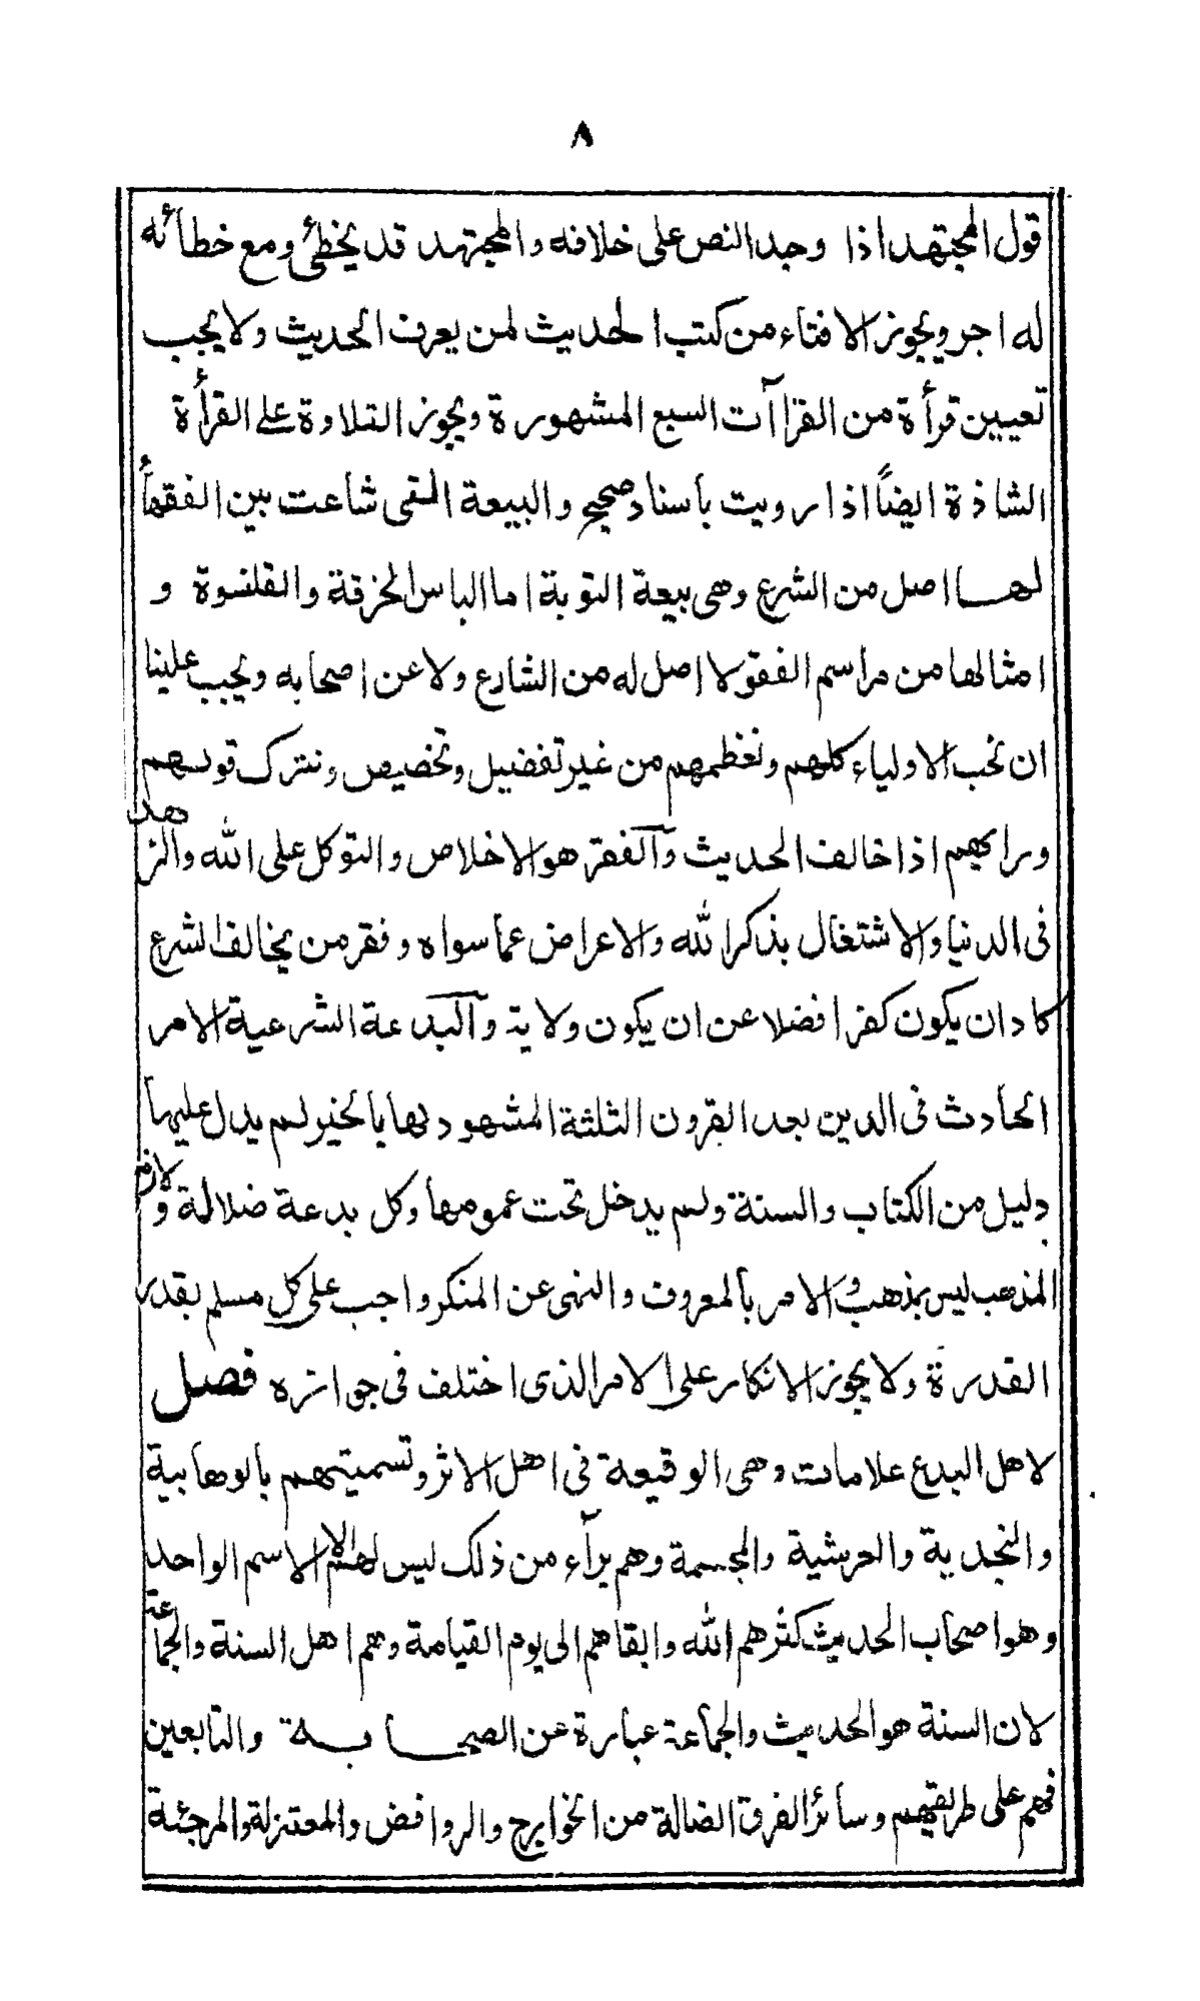 ٨
قول المجتهد اذا وجد النص على خلافه والمجتهد قد يخطئ ومع خطأئه
له اجر ويجوز الافتاء من كتب الحديث لمن يعرف الحديث ولا يجب
تعيين قرأة من القراآت السبع المشهورة ويجوز التلاوة على القرأة
الشاذة ايضاً اذا رويت بأسناد صحيح والبيعة التى شاعت بين الفقهأ
لها اصل من الشرع وهى بيعة التوبة اما الباس الخرقة والقلنسوة و
امثالها من مراسم الفقر لا اصل له من الشارع ولا عن اصحابه ويجب علينا
ان نحب الاولياء كلهم ونعظمهم من غير تفضيل وتخصيص ونترك قولهم
ورايهم اذا خالف الحديث وآلفقر هو الاخلاص والتوكل على الله والزهد
فى الدنيا والاشتغال بذكر الله والاعراض عما سواه وفقر من يخالف الشرع
كاد ان يكون كفرا فضلا عن ان يكون ولاية وآلبدعة الشرعية الامر
الحادث فى الدين بعد القرون الثلثة المشهود لها بالخير لم يدل عليها
دليل من الكتاب والسنة ولم يدخل تحت عمومها وكل بدعة ضلالة ولازم
المذهب ليس بمذهب والامر بالمعروف والنهى عن المنكر واجب على كل مسلم بقدر
القدرة ولا يجوز الانكار على الامر الذى اختلف فى جوازه فصل
لاهل البدع علامات وهى الوقيعة فى اهل الاثر وتسميتهم بالوهابية
والنجدية والعرشية والمجسمة وهم برآء من ذلك ليس لهم الا الاسم الواحد
وهو اصحاب الحديث كثرهم الله وابقاهم الى يوم القيامة وهم اهل السنة والجماعة
لان السنة هو الحديث والجماعة عبارة عن الصحابة والتابعين
فهم على طريقهم وسائر الفرق الضالة من الخوارج والروافض والمعتزلة والمرجئة